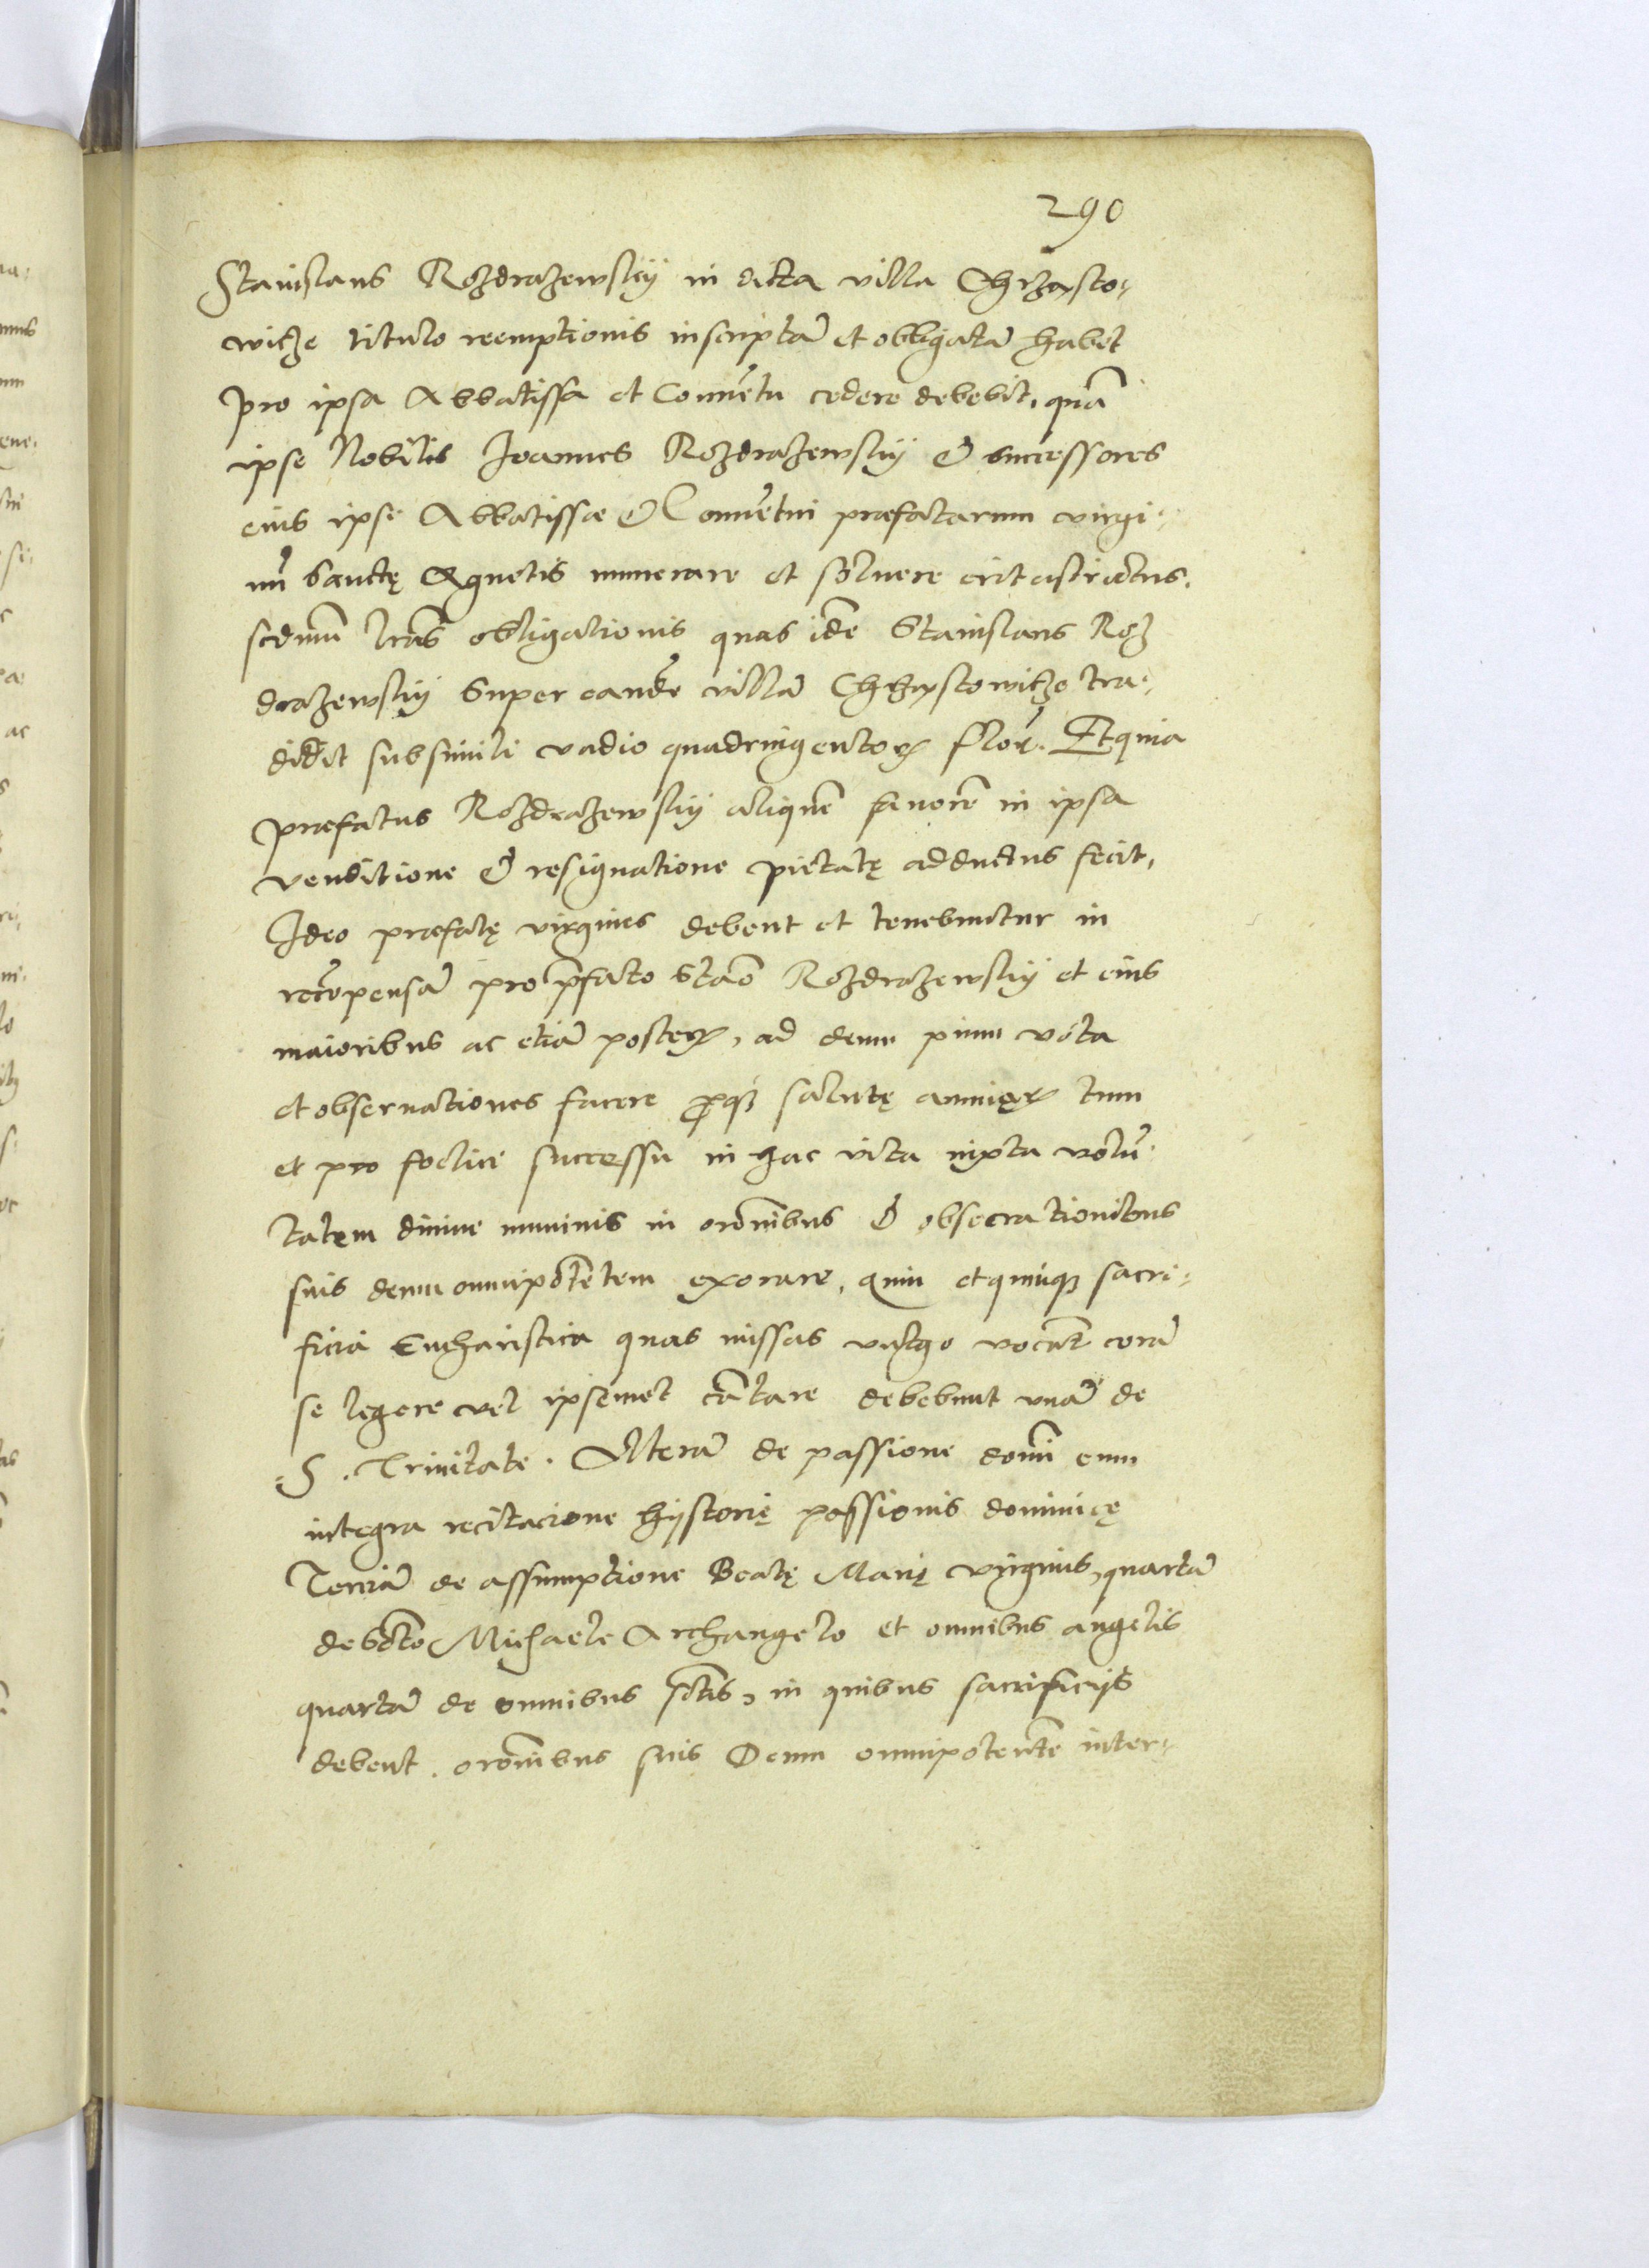 290
Stanislaus Rozdrazewsky in dicta villa Chrzasto-
witze titulo reemptionis inscriptā et obligatā habet
pro ipsa Abbatissa et Conuētu cedere debebit, quā
ipse Nobilis Joannes Rozdrazewsky & successores
eius ipse Abbatissæ & Conuētui præfatarum virgi-
nū Sanctę Agnetis numerare et soluere erit astrictus.
scdmū lrās obligationis quas idē Stanislaus Roz
drazewsky Super eandē villā tra-
didit subsimili vadio quadringentorꝝ flor. Et quia
præfatus Rozdrazewsky aliquē fauorē in ipsa
venditione & resignatione pietatę adductus fecit,
Ideo præfatę virgines debent et tenebuntur in
recōpensā pro p̄fato Stāo Rozdrazewsky et eius
maioribus ac etiā posterꝝ, ad deum pium vota
et obseruationes facere ꝓqꝫ salutę animęꝝ tum
et pro foelici successu in hac vita iuxta volū-
tatem diuine numinis in orōnibus & obsecrationibus
suis deum omnipotētem exorare, quin et quinqꝫ sacri-
ficia Eucharistica quas missas vulgo vocāt corā
se legere vel ipsemet cātare debebunt vnā de
S. Trinitate. Alterā de passione domī cum
integra recitacione hystorię passionis dominicę
Terciā de assumptione Beatę Marię virginis, quartā
de Scto Michaele Archangelo et omnibus angelis
quartā de omnibus sctis, in quibus sacrificijs
debent. orōnibus suis Deum omnipotentē inter-